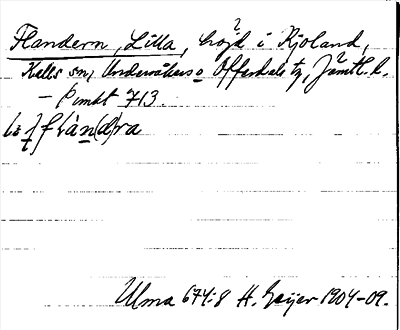 Flandern, Lilla, höjd i Kjoland,
?
Kalls sn, Undersåkers o Offerdals tg, Jämtl. l.
– Punkt 713.
flàn(d)ra
Ulma 674:8 H. Geijer 1904-09.